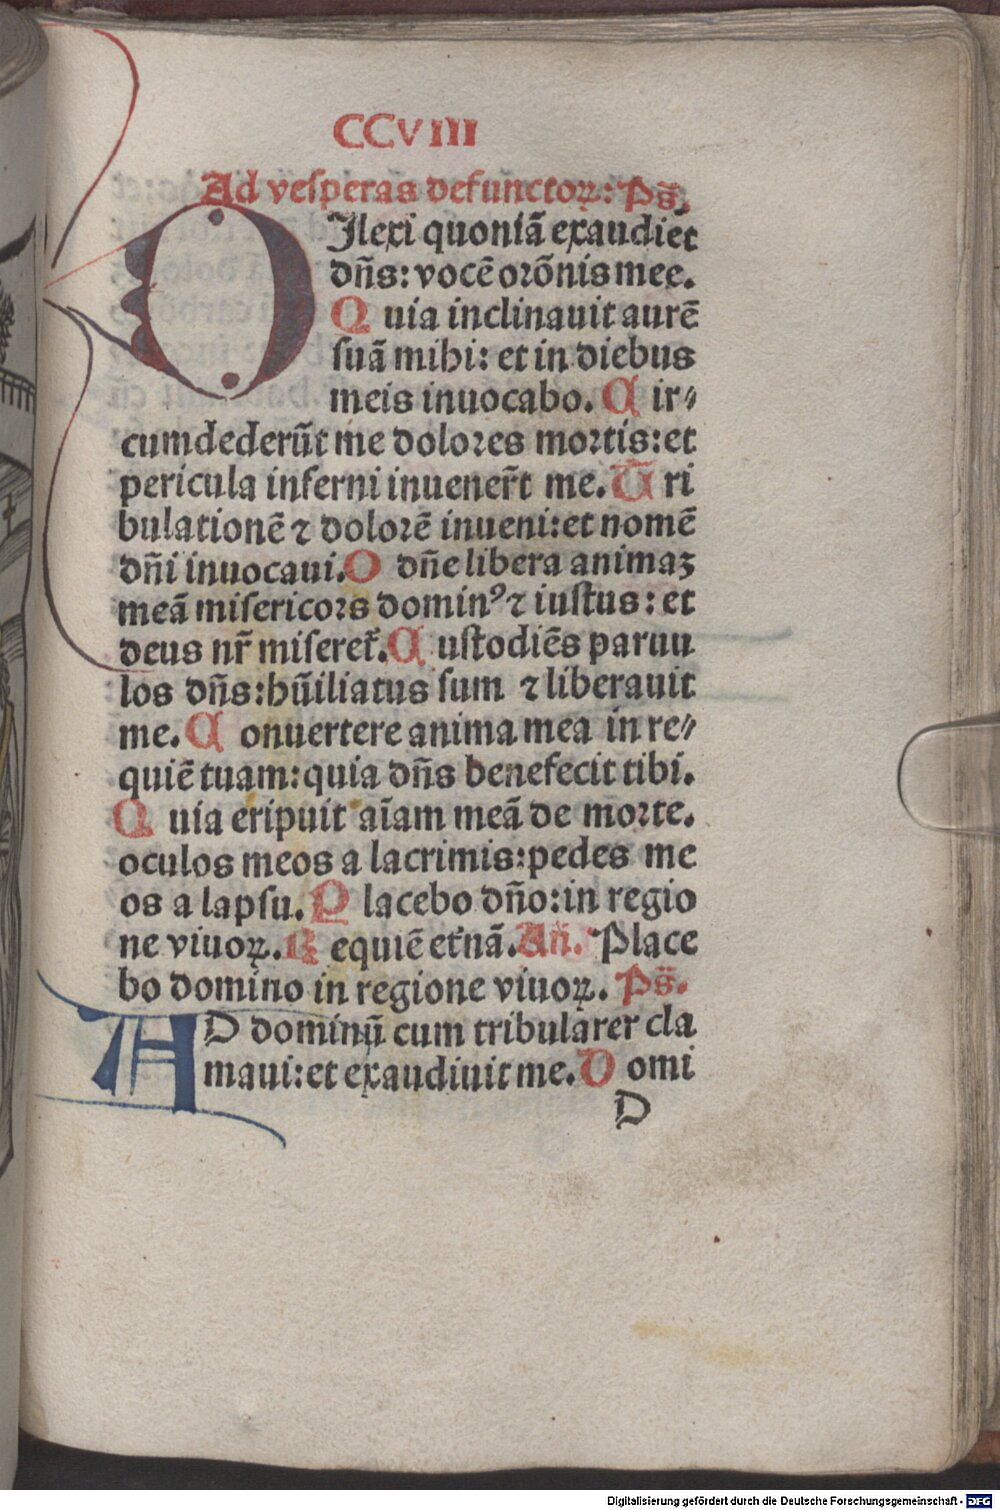 CCVIII
Ad vesperas defunctoꝝ: Ps̃.
DIlexi quoniã exaudiet
dñs: vocẽ orõnis mee.
Quia inclinauit aurẽ
suã mihi: et in diebus
meis inuocabo. Cir⸗
cumdederũt me dolores mortis: et
pericula inferni inuener̃t me. Tri
bulationẽ ⁊ dolorẽ inueni: et nomẽ
dñi inuocaui. O dñe libera animaꝫ
meã misericors dominꝰ ⁊ iustus: et
deus nr̃ miseret̃. Custodiẽs paruu
los dñs: hũiliatus sum ⁊ liberauit
me. Conuertere anima mea in re⸗
quiẽ tuam: quia dñs benefecit tibi.
Quia eripuit aĩam meã de morte.
oculos meos a lacrimis: pedes me
os a lapsu. Placebo dño: in regio
ne viuoꝝ. Requiẽ et̃nã. Añ. Place
bo domino in regione viuoꝝ. Ps̃.
AD dominũ cum tribularer cla
maui: et exaudiuit me. Domi
D
Digitalisierung gefördert durch die Deutsche Forschungsgemeinschaft - DFG